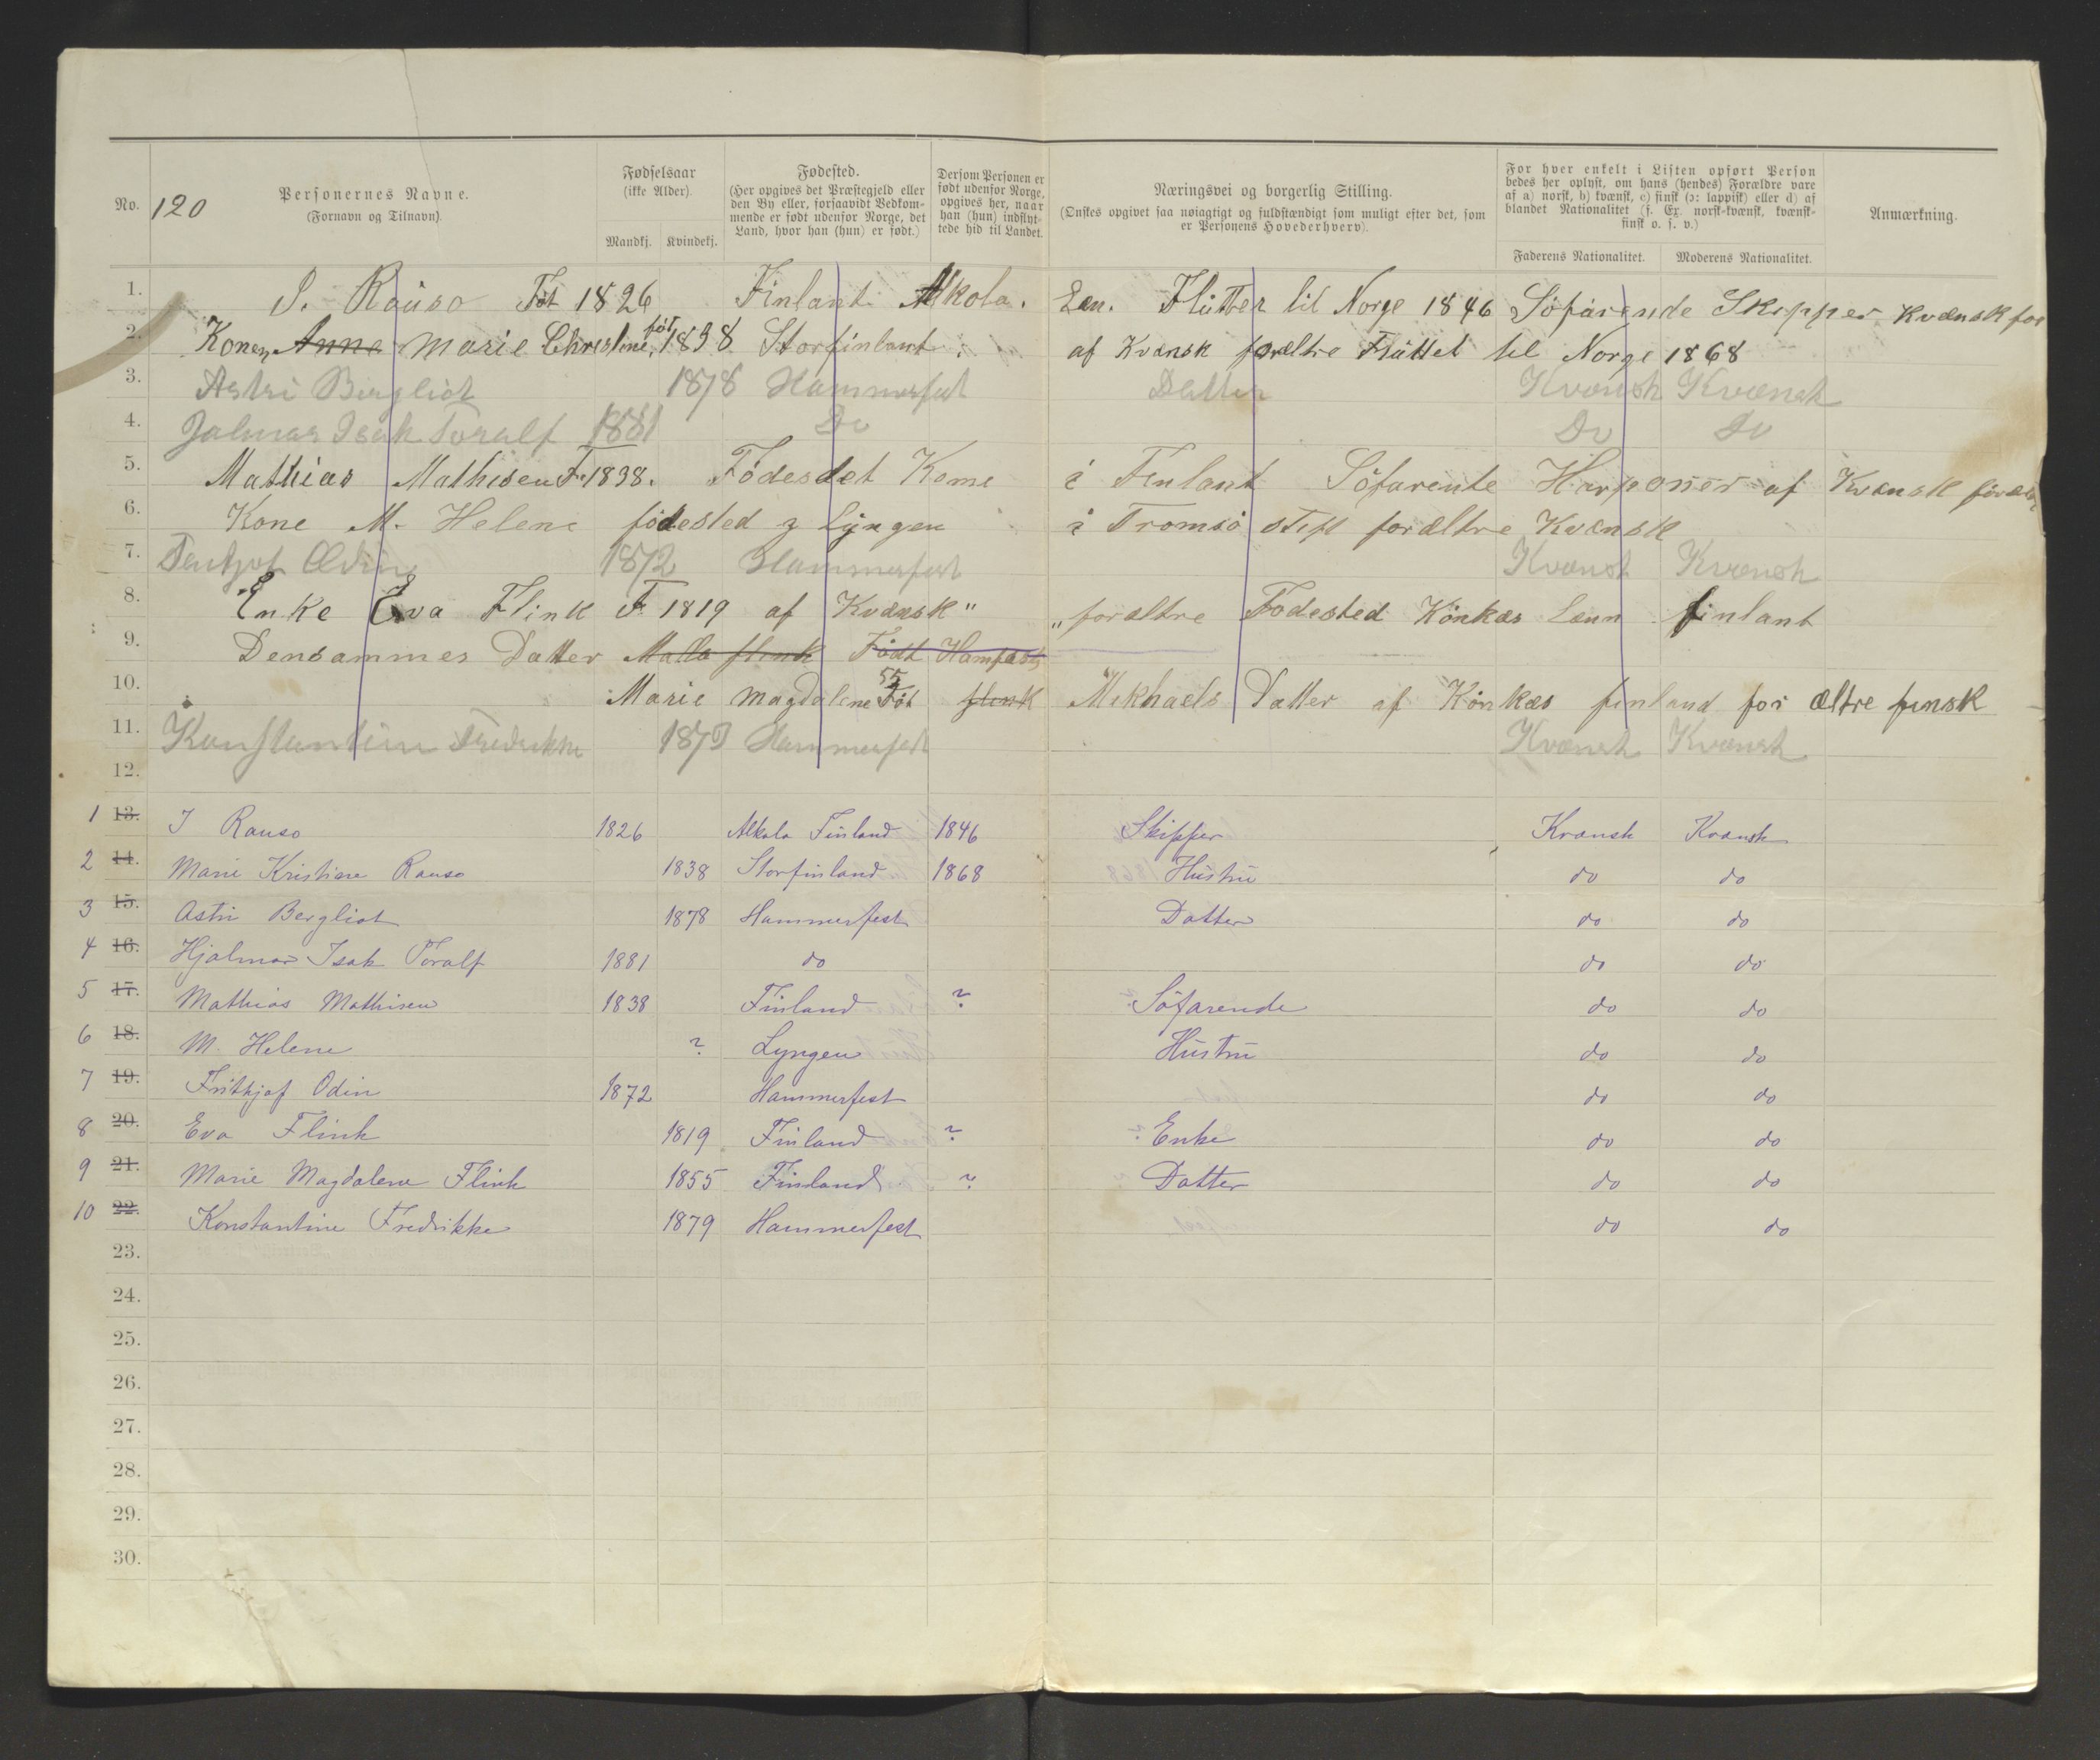 No.
120
Personernes Navne.
(Fornavn og Tilnavn).
Fødselsaar
(ikke Alder).
Mandkj. Kvindekj.
Fødested.
(Her opgives det Præstegjeld eller
den By eller, forsaavidt Vedkom-
mende er født udenfor Norge, det
Land, hvor han (hun) er født.)
Dersom Personen er
født udenfor Norge,
opgives her, naar
han (hun) indflyt-
tede hid til Landet.
Næringsvei og borgerlig Stilling.
(Ønskes opgivet saa nøiagtigt og fuldstændigt som muligt efter det, som
er Personens Hovederhverv).
For hver enkelt i Listen opført Person
bedes her oplyst, om hans (hendes) Forældre vare
af a) norsk, b) kvænsk, c) finsk (ɔ: lappisk) eller d) af
blandet Nationalitet (f. Ex. norsk-kvænsk, kvænsk-
finsk o. s. v.)
Faderens Nationalitet. Moderens Nationalitet.
Anmærkning.
1. I. Rauso Føt 1826 Finlant Alkola. Len. Flütter til Norge 1846 Söfarende Skipper Kvænsk for
2. Konen Anne Marie Christine, føt 1838 Storfinlant. af Kvænsk forældre Flüttet til Norge 1868
3. Astri Bergliot 1878 Hammerfest Datter Kvænsk Kvænsk
4. Jalmar Isak Toralf 1881 Do Do Do
5. Mathias Mathisen F. 1838. Födesdet Keme i Finlant Söfarente Harponer af Kvænsk foræld
6. Kone M. Helene födested z Lÿngen i Tromsö stift forældre Kvænsk
7. Odin 1872 Hammerfest Kvænsk Kvænsk
8. Enke Eva Flink F. 1819 af Kvænsk" "forældre Födested Könkäs Lenn finlant
9. Densammes Datter Malla flink Födt Hamfest
10. Marie Magdalene Föt 55 flink Mikhaels Datter af Könkäs finland for ældre finsk
11. Konstantine Fredrikke 1879 Hammerfest Kvænsk Kvænsk
12.
1 13. I Rauso 1826 Alkola Finland 1846 Skipper Kvænsk Kvænsk
2 14. Marie Kristine Rauso 1838 Storfinland 1868 Hustru do do
3 15. Astri Bergliot 1878 Hammerfest Datter do do
4 16. Hjalmar Isak Toralf 1881 do do do
5 17. Mathias Mathisen 1838 Finland ? Söfarende do do
6 18. M. Helene ? Lyngen Hustru do do
7 19. Frithjof Odin 1872 Hammerfest do do
8 20. Eva Flink 1819 Finland ? Enke do do
9 21. Marie Magdalene Flink 1855 Finland ? Datter do do
10 22. Konstantine Fredrikke 1879 Hammerfest do do
23.
24.
25.
26.
27.
28.
29.
30.